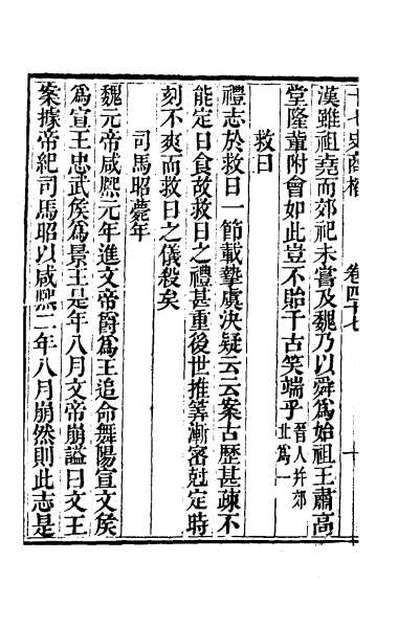 十七史商榷 卷四十七 十
漢雖祖堯而郊祀未嘗及魏乃以舜爲始祖王肅高
堂隆輩附會如此豈不貽千古笑端乎晉人幷郊丘爲一
救日
禮志於救日一節載摯虞決疑云云案古歷甚疎不
能定日食故救日之禮甚重後世推筭漸密尅定時
刻不爽而救日之儀殺矣
司馬昭薨年
魏元帝咸熙元年進文帝爵爲王追命舞陽宣文矦
爲宣王忠武矦爲景王是年八月文帝崩謚曰文王
案據帝紀司馬昭以咸熙二年八月崩然則此志是